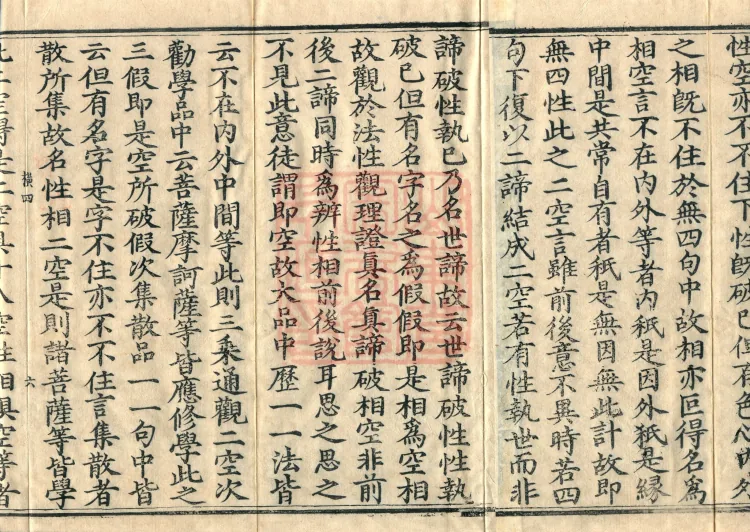 性空亦不不住下性既破已但有色心内外
之相既不住於無四句中故相亦叵得名爲
相空言不在内外等者内秖是因外秖是縁
中間是共常自有者秖是無因無此計故即
無四性此之二空言雖前後意不異時若四
句下復以二諦結成二空若有性執世而非
諦破性執已乃名世諦故云世諦破性性執
破已但有名字名之爲假假即是相爲空相
故觀於法性觀理證真名真諦破相空非前
後二諦同時爲辨性相前後說耳思之思之
不見此意徒謂即空故大品中歷一一法皆
云不在内外中間等此則三乘通觀二空次
勸學品中云菩薩摩訶薩等皆應修學此之
三假即是空所破假次集散品一一句中皆
云但有名字是字不住亦不不住言集散者
散所集故名性相二空是則諸菩薩等皆學
橫四
六
此二空得是二空與十八空性相俱空等者